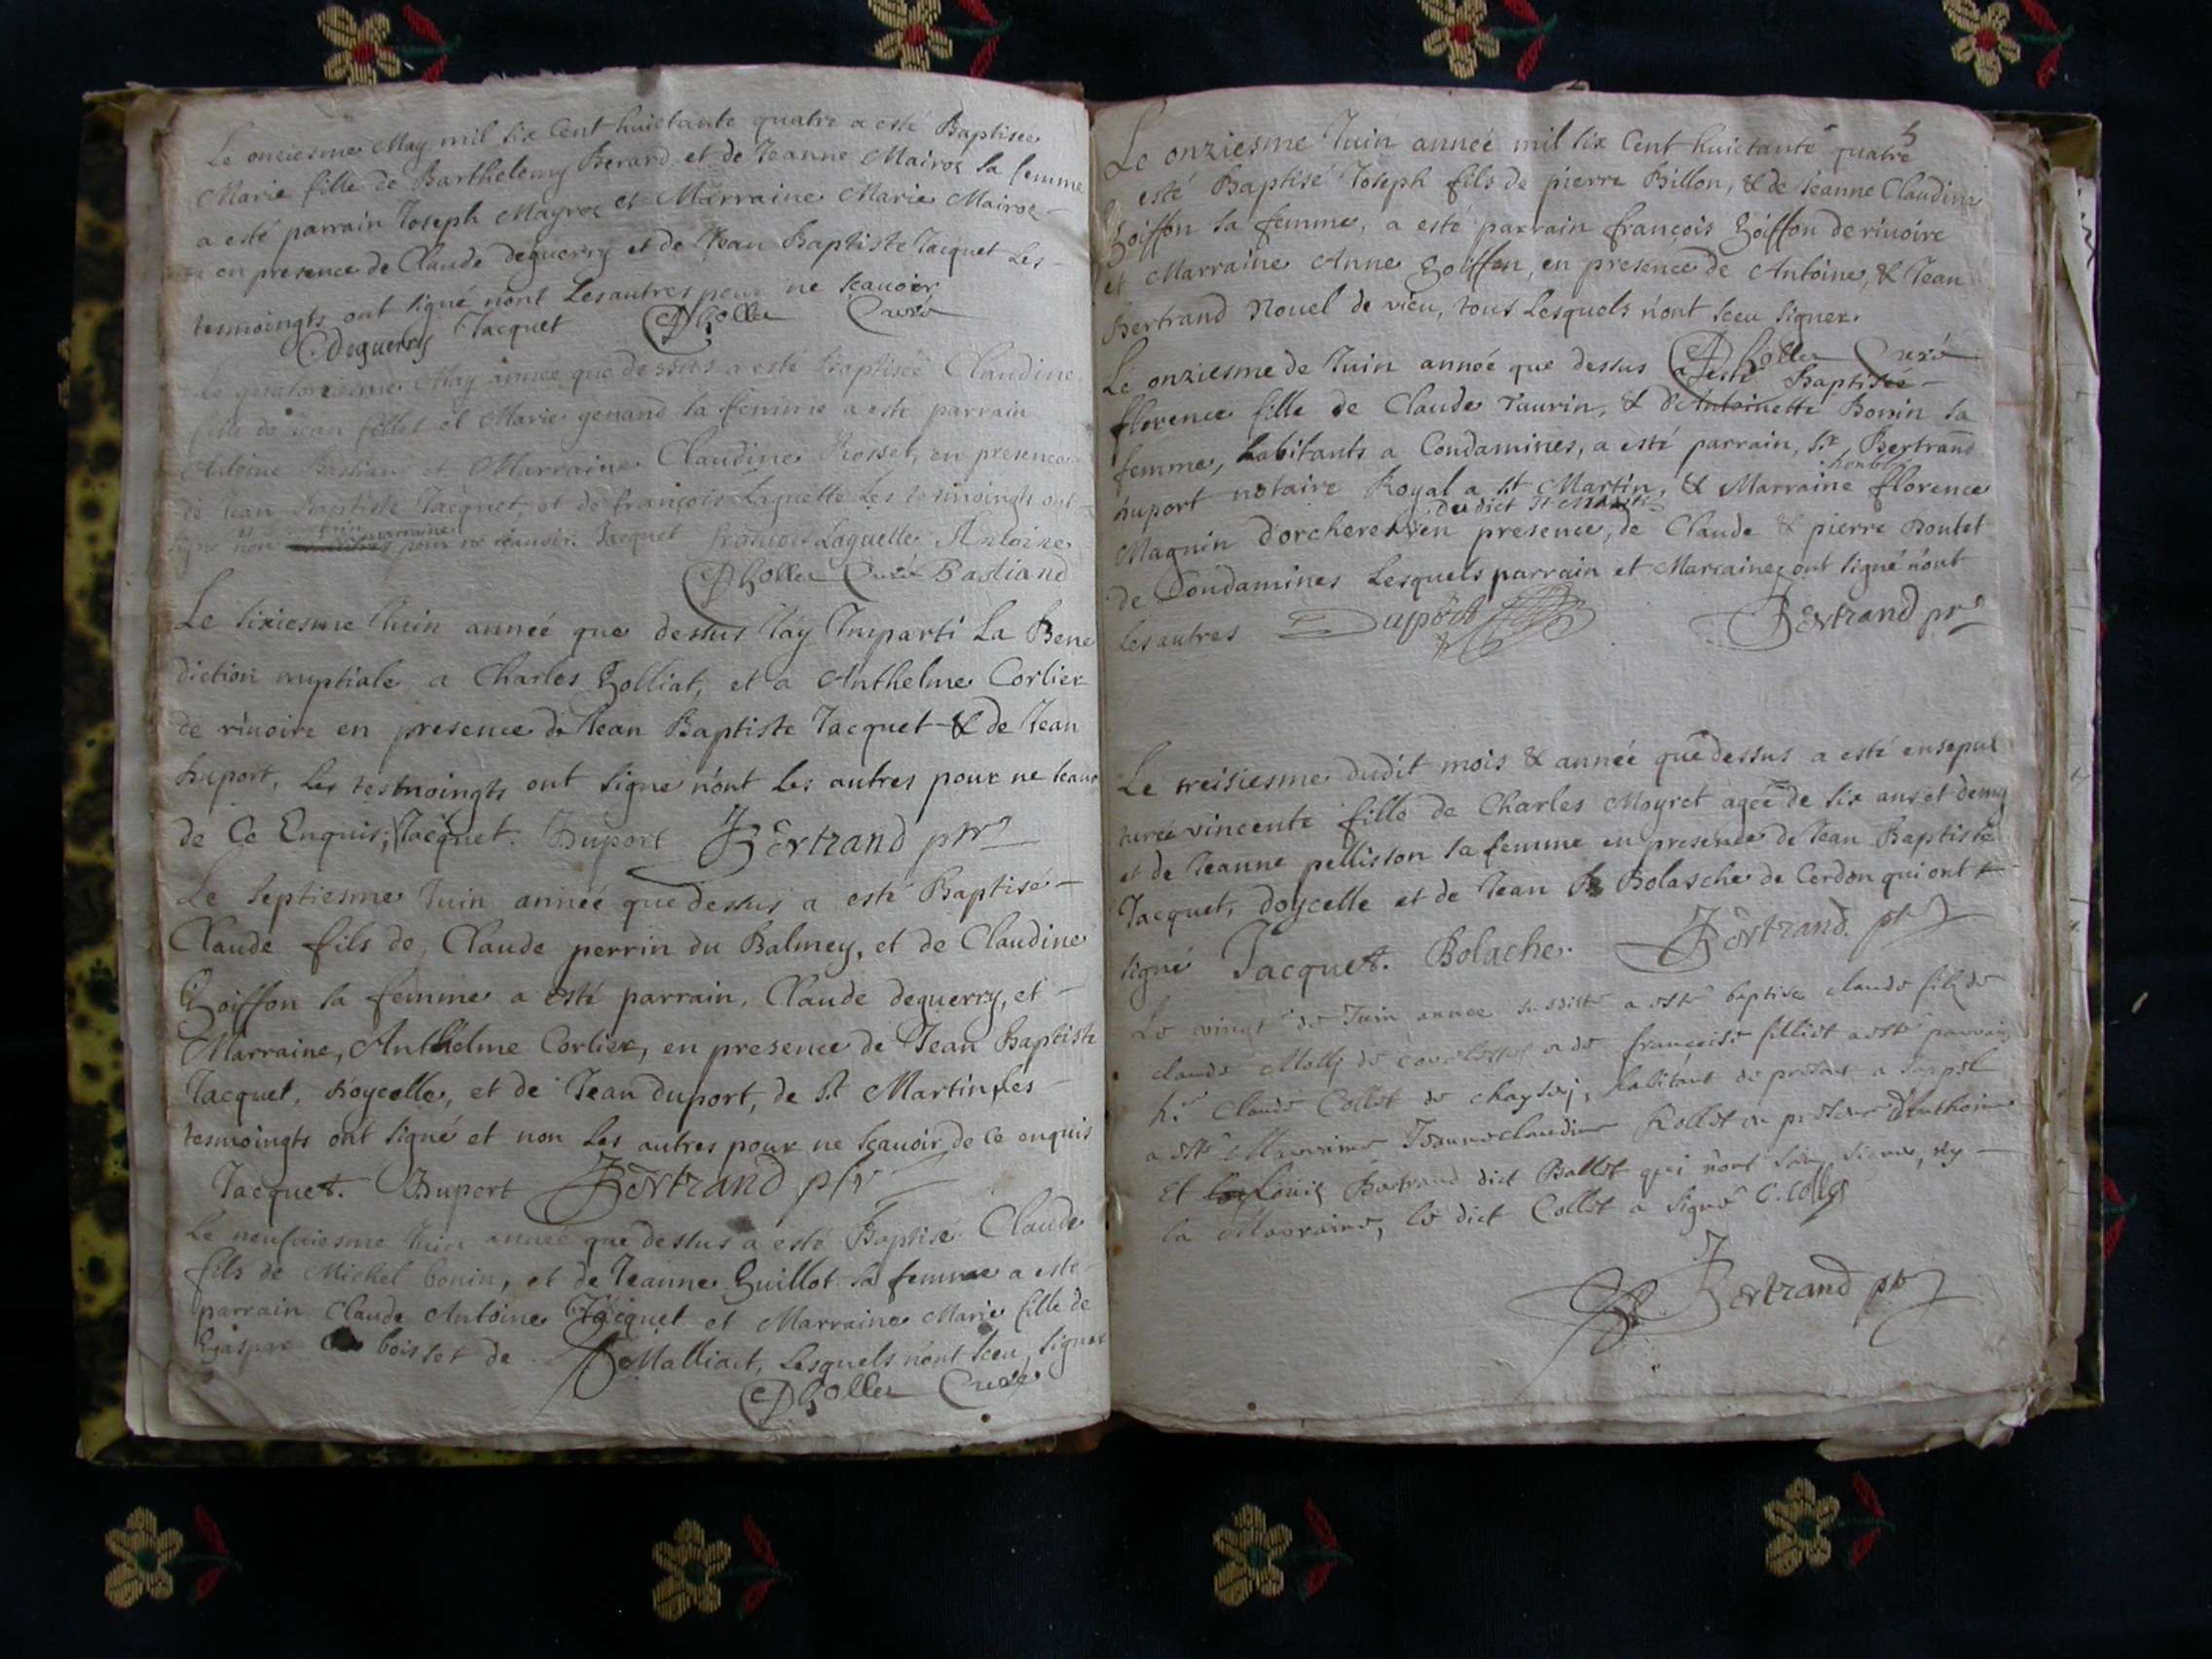 Le onziesme May mil six Cent huictante quatre a esté Baptisée
Marie fille de Barthelemy Berard et de Jeanne Mairoz sa femme
a esté parrain Joseph Mayroz et Marraine Marie Mairoz
en presence de Claude deguerry et de Jean Baptiste Jacquet Les
tesmoingts ont signé nont Les autres pour ne scauoir
Deguerry Jacquet Curé
Le quatorziesme May année que dessus a esté Baptisée Claudine
fille de Jean fillet et Marie genand sa femme a esté parrain
Antoine Bastian et Marraine Claudine Rosset, en presence
de Jean Baptiste Jacquet, et de françois Laguette Les tesmoingts ont
signé non marraine pour ne scauoir. Jacquet françois Laguette Antoine
Curé Bastiand
Le sixiesme Juin année que dessus J'ay Imparti La Bene
diction nuptiale a Charles Golliat, et a Anthelme Corlier
de riuoire en presence de Jean Baptiste Jacquet & de Jean
Duport, Les tesmoingts ont signe nont Les autres pour ne scauoir
de Ce Enquis; Jacquet. Duport Bertrand ptre
Le septiesme Juin année que dessus a esté Baptisé
Claude fils de Claude perrin du Balmey, et de Claudine
Goiffon sa femme a esté parrain, Claude deguerry, et
Marraine, Anthelme Corlier, en presence de Jean Baptiste
Jacquet, d'oycelle, et de Jean duport, de St Martin, Les
tesmoingts ont signé et non Les autres pour ne scauoir de ce enquis
Jacquet. Duport Bertrand ptr
Le neufuiesme Juin année que dessus a esté Baptisé Claude
fils de Michel bonin, et de Jeanne Guillot sa femme a esté
parrain Claude Antoine Jacquet et Marraine Marie fille de
Gaspar boisset de Malliact, Lesquels n'ont sceu signer
Curé
Le onziesme Juin année mil six Cent huictante quatre
esté Baptisé Joseph fils de pierre Billon, & de Jeanne Claudine
Goiffon sa femme, a esté parrain françois Goiffon de riuoire
et Marraine Anne Goiffon, en presence de Antoine, & Jean
Bertrand Nouel de vieu, tous Lesquels n'ont sceu signer.
Curé
Le onziesme de Juin année que dessus a esté Baptisée
florence fille de Claude Taurin, & d'Antoinette Bonin sa
femme, habitants a Condamines, a esté parrain, Sr Bertrand
duport notaire Royal a St Martin, & Marraine honble florence
Magnin d'orcheres dudict St Martin en presence, de Claude & pierre Boutet
de Condamines Lesquels parrain et Marraine ont signé n'ont
Les autres Duport Bertrand ptr
Le treisiesme dudit mois & année que dessus a esté ensepul
turée vincente fille de Charles Mayret agée de six ans et demy
et de Jeanne pellisson sa femme en presence de Jean Baptiste
Jacquet, doycelle et de Jean Bolasche de Cerdon qui ont
signé Jacquet. Bolache. Bertrand. ptr
Le vingt de Juin annee susditte a esté baptisé claude filz de
claude Molly de et de françoise filliot a esté parrain
hr Claude Collet de , habitant de present a
a esté Marraine Jeanneclaudine Rollet en presence d'Anthoine
Et Louis Bertrand dict Ballet qui n'ont signer, ny
la Marraine, le dict Collet a signé C. Collet
Bertrand ptr